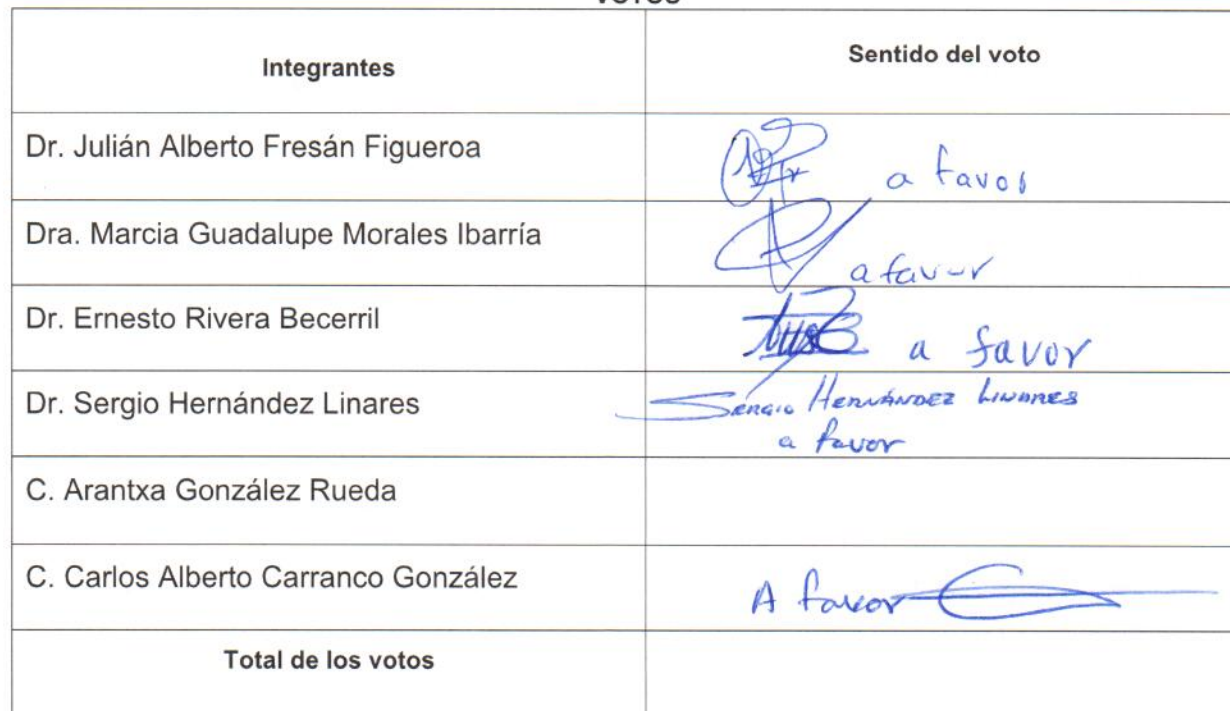 VOTOS
Integrantes
Sentido del voto
Dr. Julián Alberto Fresán Figueroa
a favor
Dra. Marcia Guadalupe Morales Ibarría
a favor
Dr. Ernesto Rivera Becerril
a favor
Dr. Sergio Hernández Linares
Sergio HERNÁNDEZ LINARES
a favor
C. Arantxa González Rueda
C. Carlos Alberto Carranco González
A favor
Total de los votos